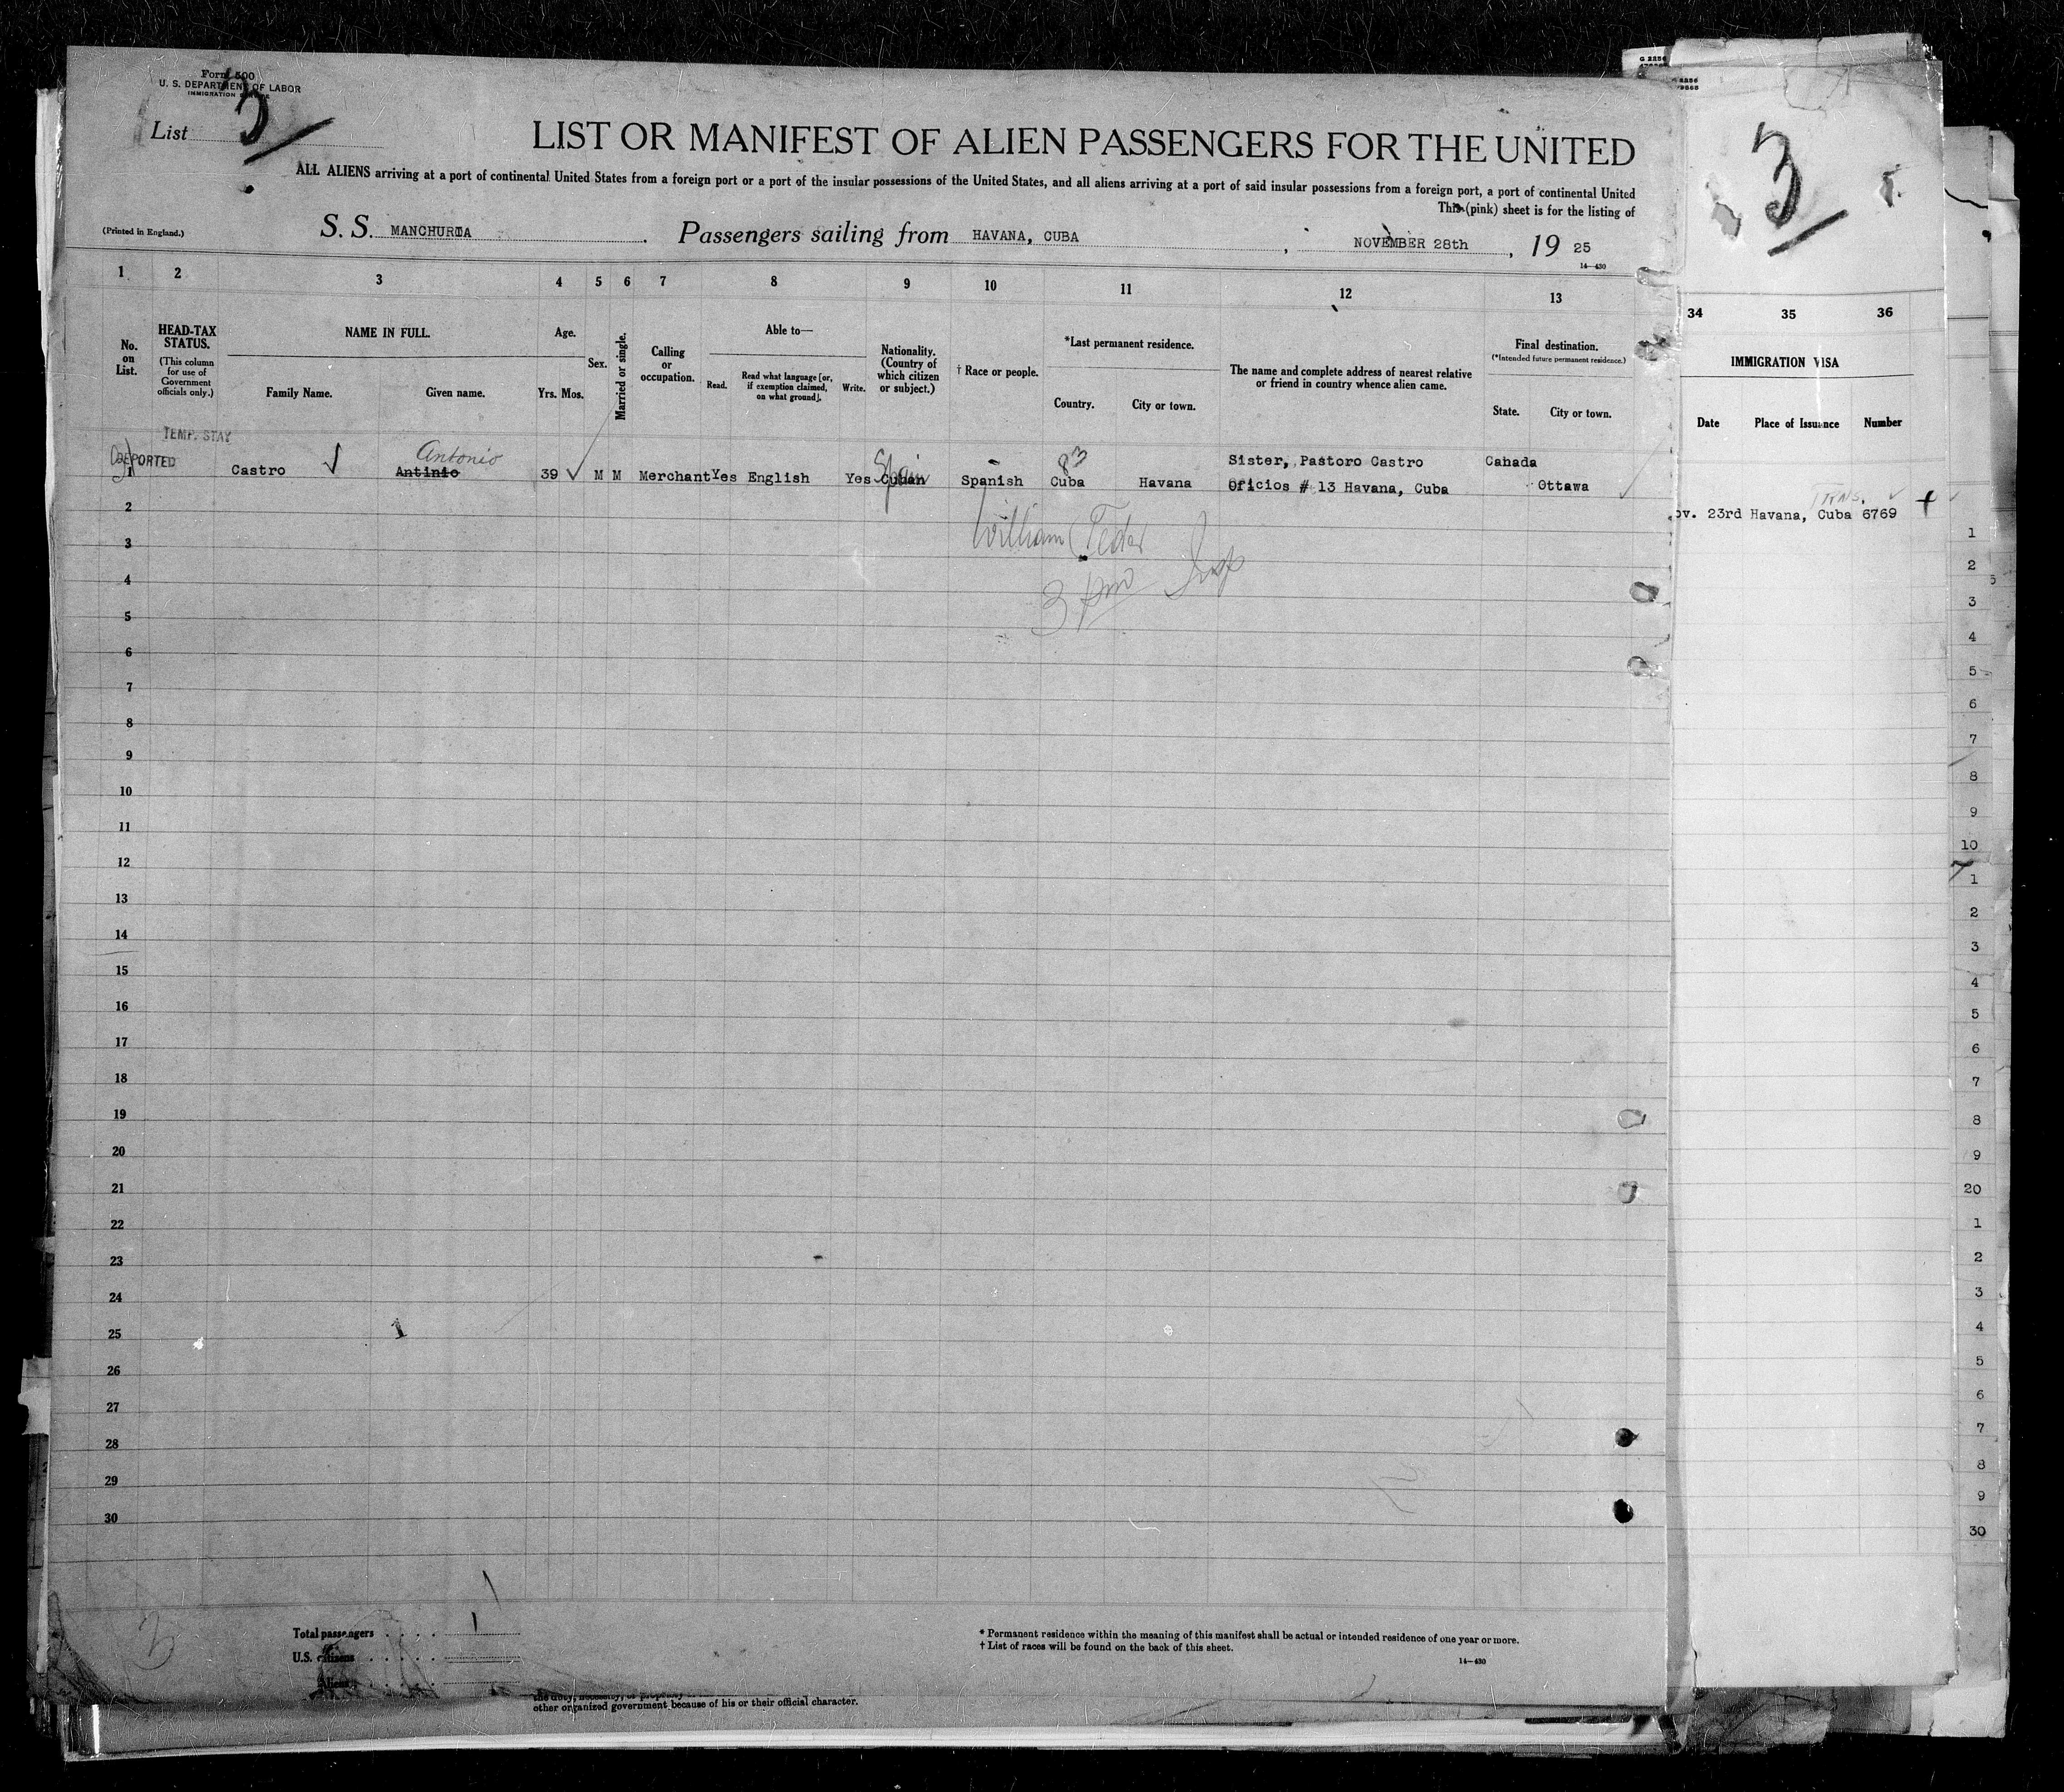 Form 500
U. S. DEPARTMENT OF LABOR
IMMIGRATION
List 3
LIST OR MANIFEST OF ALIEN PASSENGERS FOR THE UNITED
ALL ALIENS arriving at a port of continental United States from a foreign port or a port of the insular possessions of the United States, and all aliens arriving at a port of said insular possessions from a foreign port, a port of continental United
This (pink) sheet is for the listing of
(Printed in England.)
S. S. MANCHURIA . Passengers sailing from HAVANA, CUBA , NOVEMBER 28th , 19 25
14—430
1 2 3 4 5 6 7 8 9 10 11 12 13
No. on List.
HEAD-TAX STATUS.
(This column for use of Government officials only.)
NAME IN FULL.
Family Name. Given name.
Age.
Yrs. Mos.
Sex.
Married or single.
Calling or occupation.
Able to—
Read. Read what language [or, if exemption claimed, on what ground]. Write.
Nationality. (Country of which citizen or subject.)
† Race or people.
*Last permanent residence.
Country. City or town.
The name and complete address of nearest relative or friend in country whence alien came.
Final destination.
(*Intended future permanent residence.)
State. City or town.
TEMP. STAY
DEPORTED
Antonio
1 Castro Antinio 39 M M Merchant Yes English Yes Cuban Spain Spanish Cuba Havana
Sister, Pastoro Castro
Oficios # 13 Havana, Cuba
Canada
Ottawa
William
3 pm Insp
2
3
4
5
6
7
8
9
10
11
12
13
14
15
16
17
18
19
20
21
22
23
24
25
26
27
28
29
30
1
Total passengers . . . . 1
U.S. citizens . . . . .
Aliens . . . .
* Permanent residence within the meaning of this manifest shall be actual or intended residence of one year or more.
† List of races will be found on the back of this sheet.
14—430
other organized government because of his or their official character.
3
34 35 36
IMMIGRATION VISA
Date Place of Issuance Number
Trns.
ov. 23rd Havana, Cuba 6769
1
2
3
4
5
6
7
8
9
10
1
2
3
4
5
6
7
8
9
20
1
2
3
4
5
6
7
8
9
30